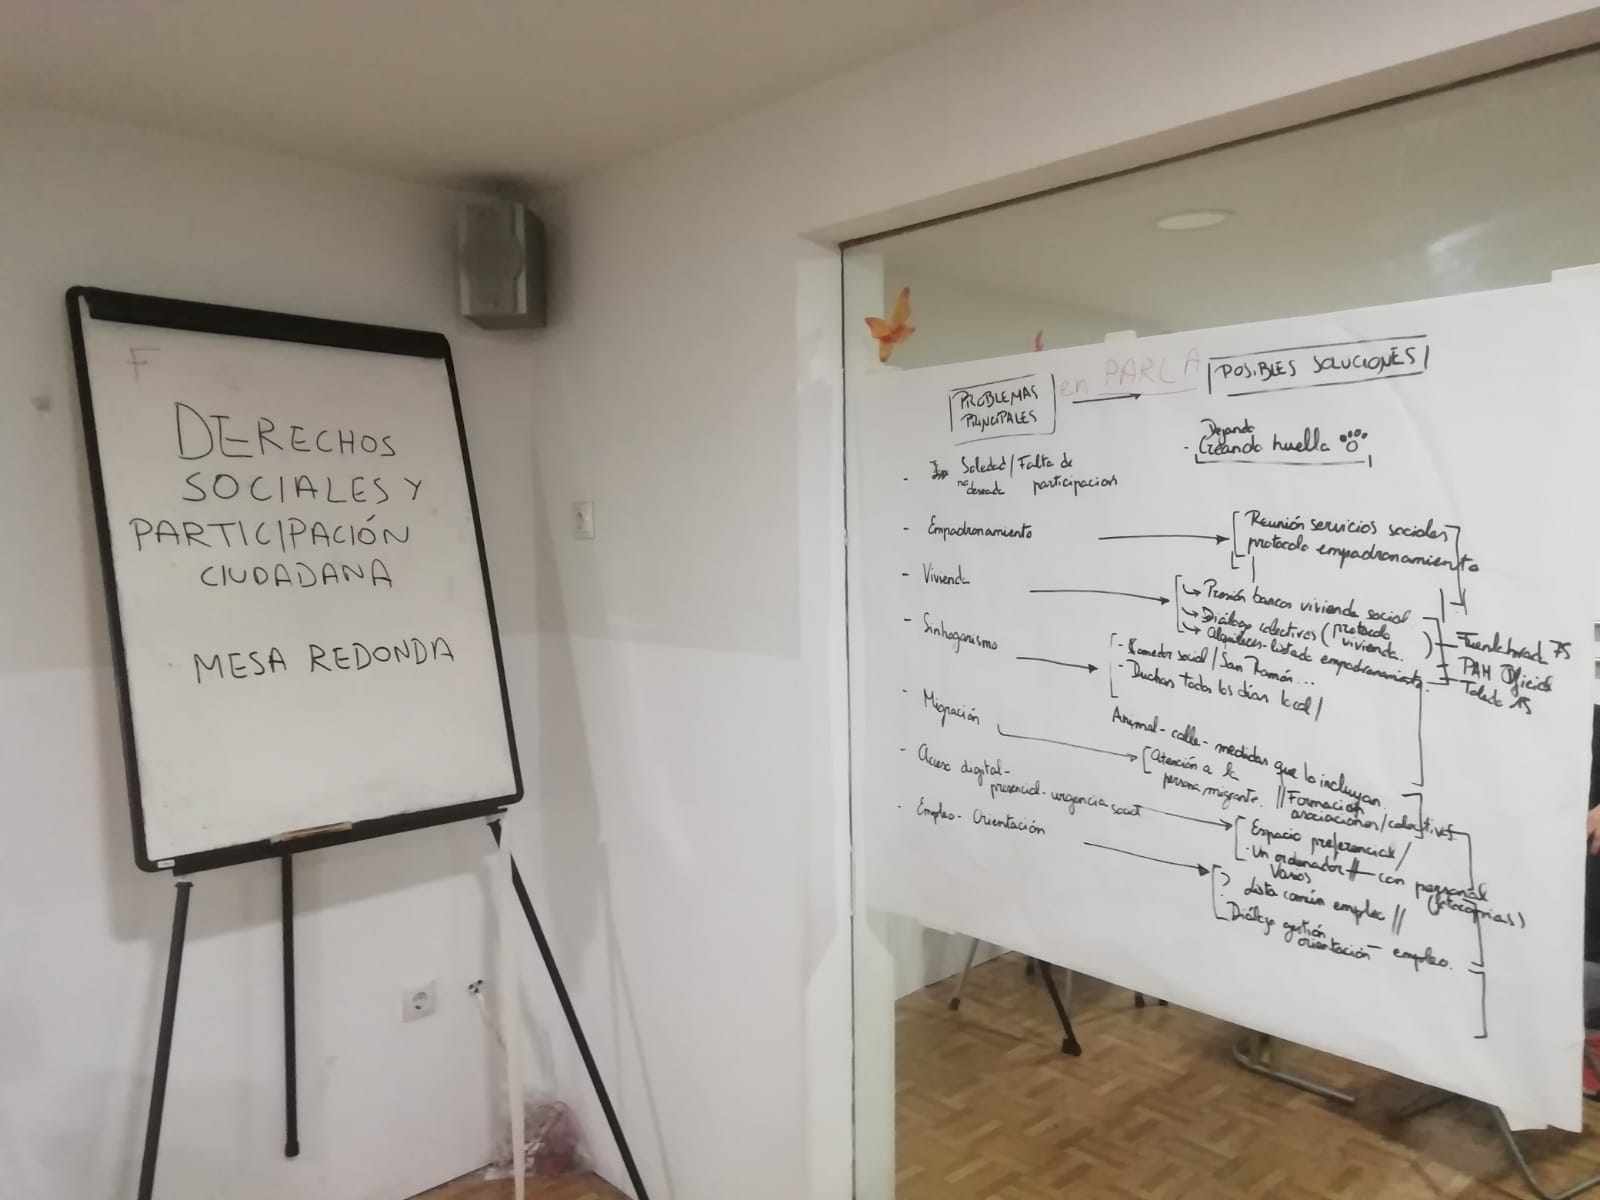 F
DERECHOS
SOCIALES Y
PARTICIPACIÓN
CIUDADANA
MESA REDONDA
PROBLEMAS
PRINCIPALES
en PARLA
POSIBLES SOLUCIONES
Dejando
- Creando huella
- Soledad / Falta de
no deseada participacion
- Empadronamiento
Reunión servicios sociales
protocolo empadronamiento
- Vivienda
Presión bancos vivienda social
Diálogo colectivos (protocolo
vivienda.)
Alquileres - listado empadronamiento.
Fuenlabrada 75
PAH
Toledo 15
- Sinhogarismo
- Comedor social / San Ramón...
- Duchas todos los días local /
Animal - calle - medidas que lo incluyan.
- Migración
Atención a la
persona migrante. // Formación
asociaciones / colectivos
- Acceso digital -
presencial - urgencia social
Espacio preferencial /
- Un ordenador // con personal
Varios (fotocopias)
- Empleo - Orientación
? Lista común empleo //
Diálogo gestión
orientación - empleo.